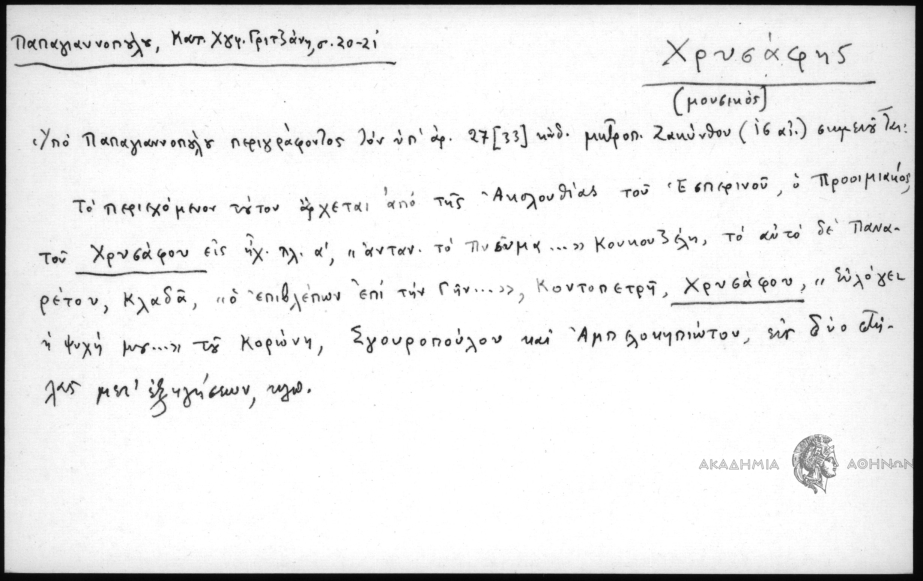 Παπαγιαννοπούλου, Κατ. Χγφ. Γριτζάνη, σ. 20-21
Χρυσάφης
(μουσικός)
Ὑπὸ Παπαγιαννοπούλου περιγράφοντος τὸν ὑπ' ἀρ. 27 [33] κώδ. μητροπ. Ζακύνθου (ις αἰ.) σημειοῦται:
Τὸ περιεχόμενον τούτου ἄρχεται ἀπὸ τῆς Ἀκολουθίας τοῦ Ἑσπερινοῦ, ὁ Προοιμιακός,
τοῦ Χρυσάφου εἰς ἦχ. πλ. α', "ἀνταν. τὸ πνεῦμα..." Κουκουζέλη, τὸ αὐτὸ δὲ Πανα-
ρέτου, Κλαδᾶ, "ὁ ἐπιβλέπων ἐπὶ τὴν Γῆν...", Κοντοπετρῆ, Χρυσάφου, "Εὐλόγει
ἡ ψυχή μου..." τοῦ Κορώνη, Σγουροπούλου καὶ Ἀμπελοκηπιώτου, εἰς δύο στή-
λας μετ' ἐξηγήσεων, κλπ.
ΑΚΑΔΗΜΙΑ ΑΘΗΝΩΝ